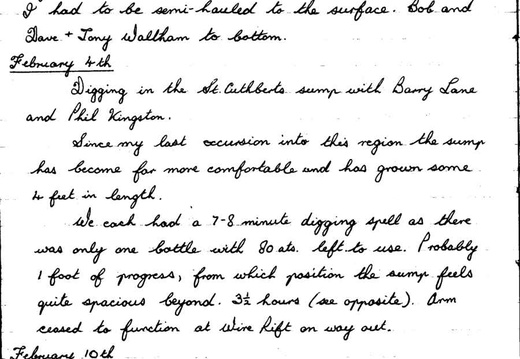 I had to be semi-hauled to the surface. Bob and
Dave + Tony Waltham to bottom.
February 4th
Digging in the St. Cuthberts sump with Barry Lane
and Phil Kingston.
Since my last excursion into this region the sump
has become far more comfortable and has grown some
4 feet in length.
We each had a 7-8 minute digging spell as there
was only one bottle with 80 ats. left to use. Probably
1 foot of progress, from which position the sump feels
quite spacious beyond. 3½ hours (see opposite). Arm
ceased to function at Wire Rift on way out.
February 10th